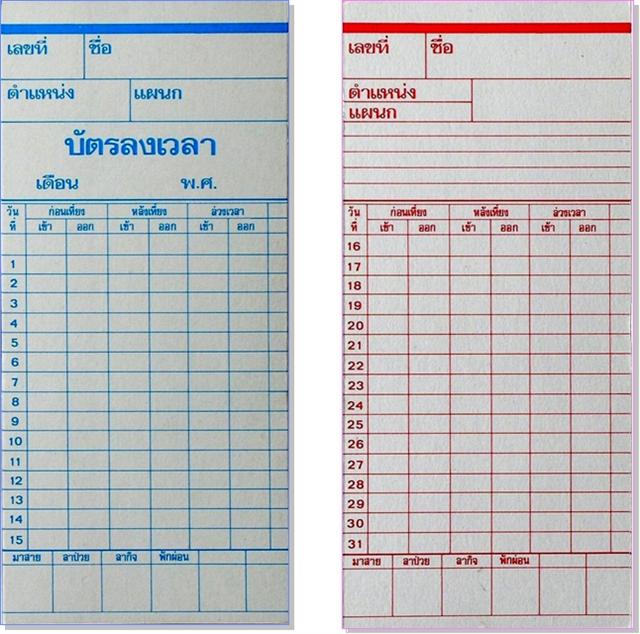 เลขที่ ชื่อ
ตำแหน่ง แผนก
บัตรลงเวลา
เดือน พ.ศ.
วันที่ ก่อนเที่ยง หลังเที่ยง ล่วงเวลา
เข้า ออก เข้า ออก เข้า ออก
1
2
3
4
5
6
7
8
9
10
11
12
13
14
15
มาสาย ลาป่วย ลากิจ พักผ่อน
เลขที่ ชื่อ
ตำแหน่ง
แผนก
วันที่ ก่อนเที่ยง หลังเที่ยง ล่วงเวลา
เข้า ออก เข้า ออก เข้า ออก
16
17
18
19
20
21
22
23
24
25
26
27
28
29
30
31
มาสาย ลาป่วย ลากิจ พักผ่อน